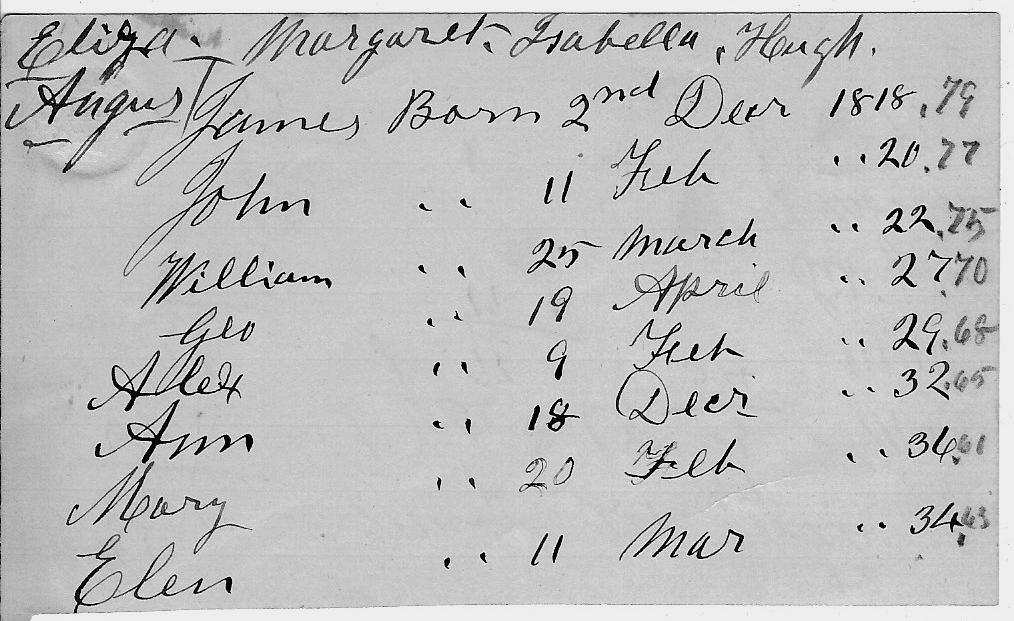 Eliza. Margaret. Isabella, Hugh.
Angus James Born 2nd Decr 1818. 79
John .. 11 Feb .. 20. 77
William .. 25 March .. 22. 75
Geo .. 19 April .. 27. 70
Alex .. 9 Feb .. 29. 68
Ann .. 18 Decr .. 32. 65
Mary .. 20 Feb .. 36. 61
Elen .. 11 Mar .. 34. 63